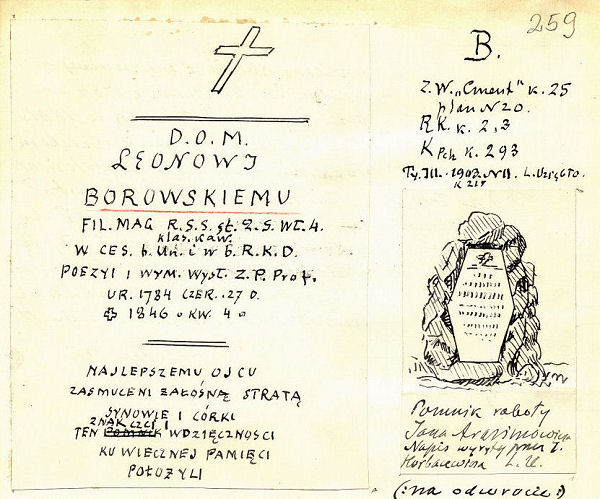 259
D.O.M.
LEONOWI
BOROWSKIEMU
FIL. MAG R.S.S. st. 2. S. Wł. 4.
klas. kaw.
W CES. b. Un. i w b. R.K.D.
POEZYI I WYM. Wyst. Z.P. Prof.
UR. 1784 CZER. 27 D.
1846 KW. 4
NAJLEPSZEMU OJCU
ZASMUCENI ŻAŁOŚNĄ STRATĄ
SYNOWIE I CÓRKI
ZNAK CZCI I
TEN POMNIK WDZIĘCZNOŚCI
KU WIECZNEJ PAMIĘCI
POŁOŻYLI
B.
Z.W. „Cment" k. 25
plan N 20.
R.K. k. 2, 3
K Pch k. 293
Ty. Ill. 1903. N 11. L. Uziębło.
Pomnik roboty
Jana
Napis wyryty przez I.
Horbacewicza L. U.
(: na odwrocie :)